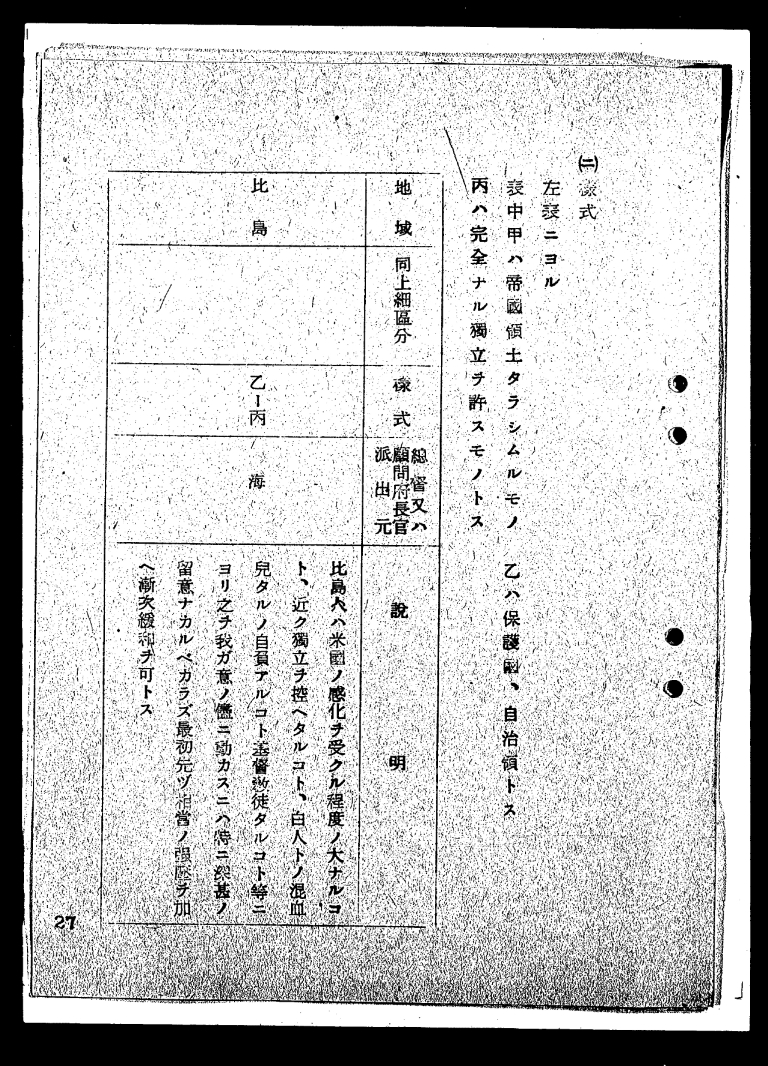 ㈡ 樣式
左表ニヨル
表中甲ハ帝國領土タラシムルモノ 乙ハ保護國、自治領トス
丙ハ完全ナル獨立ヲ許スモノトス
地域
同上細區分
樣式
總督又ハ
顧問府長官
派出元
說明
比島
乙―丙
海
比島人ハ米國ノ感化ヲ受クル程度ノ大ナルコ
ト、近ク獨立ヲ控ヘタルコト、白人トノ混血
兒タルノ自負アルコト基督敎徒タルコト等ニ
ヨリ之ヲ我ガ意ノ儘ニ動カスニハ特ニ深甚ノ
留意ナカルベカラズ最初元ヅ相當ノ强壓ヲ加
ヘ漸次緩和ヲ可トス
27